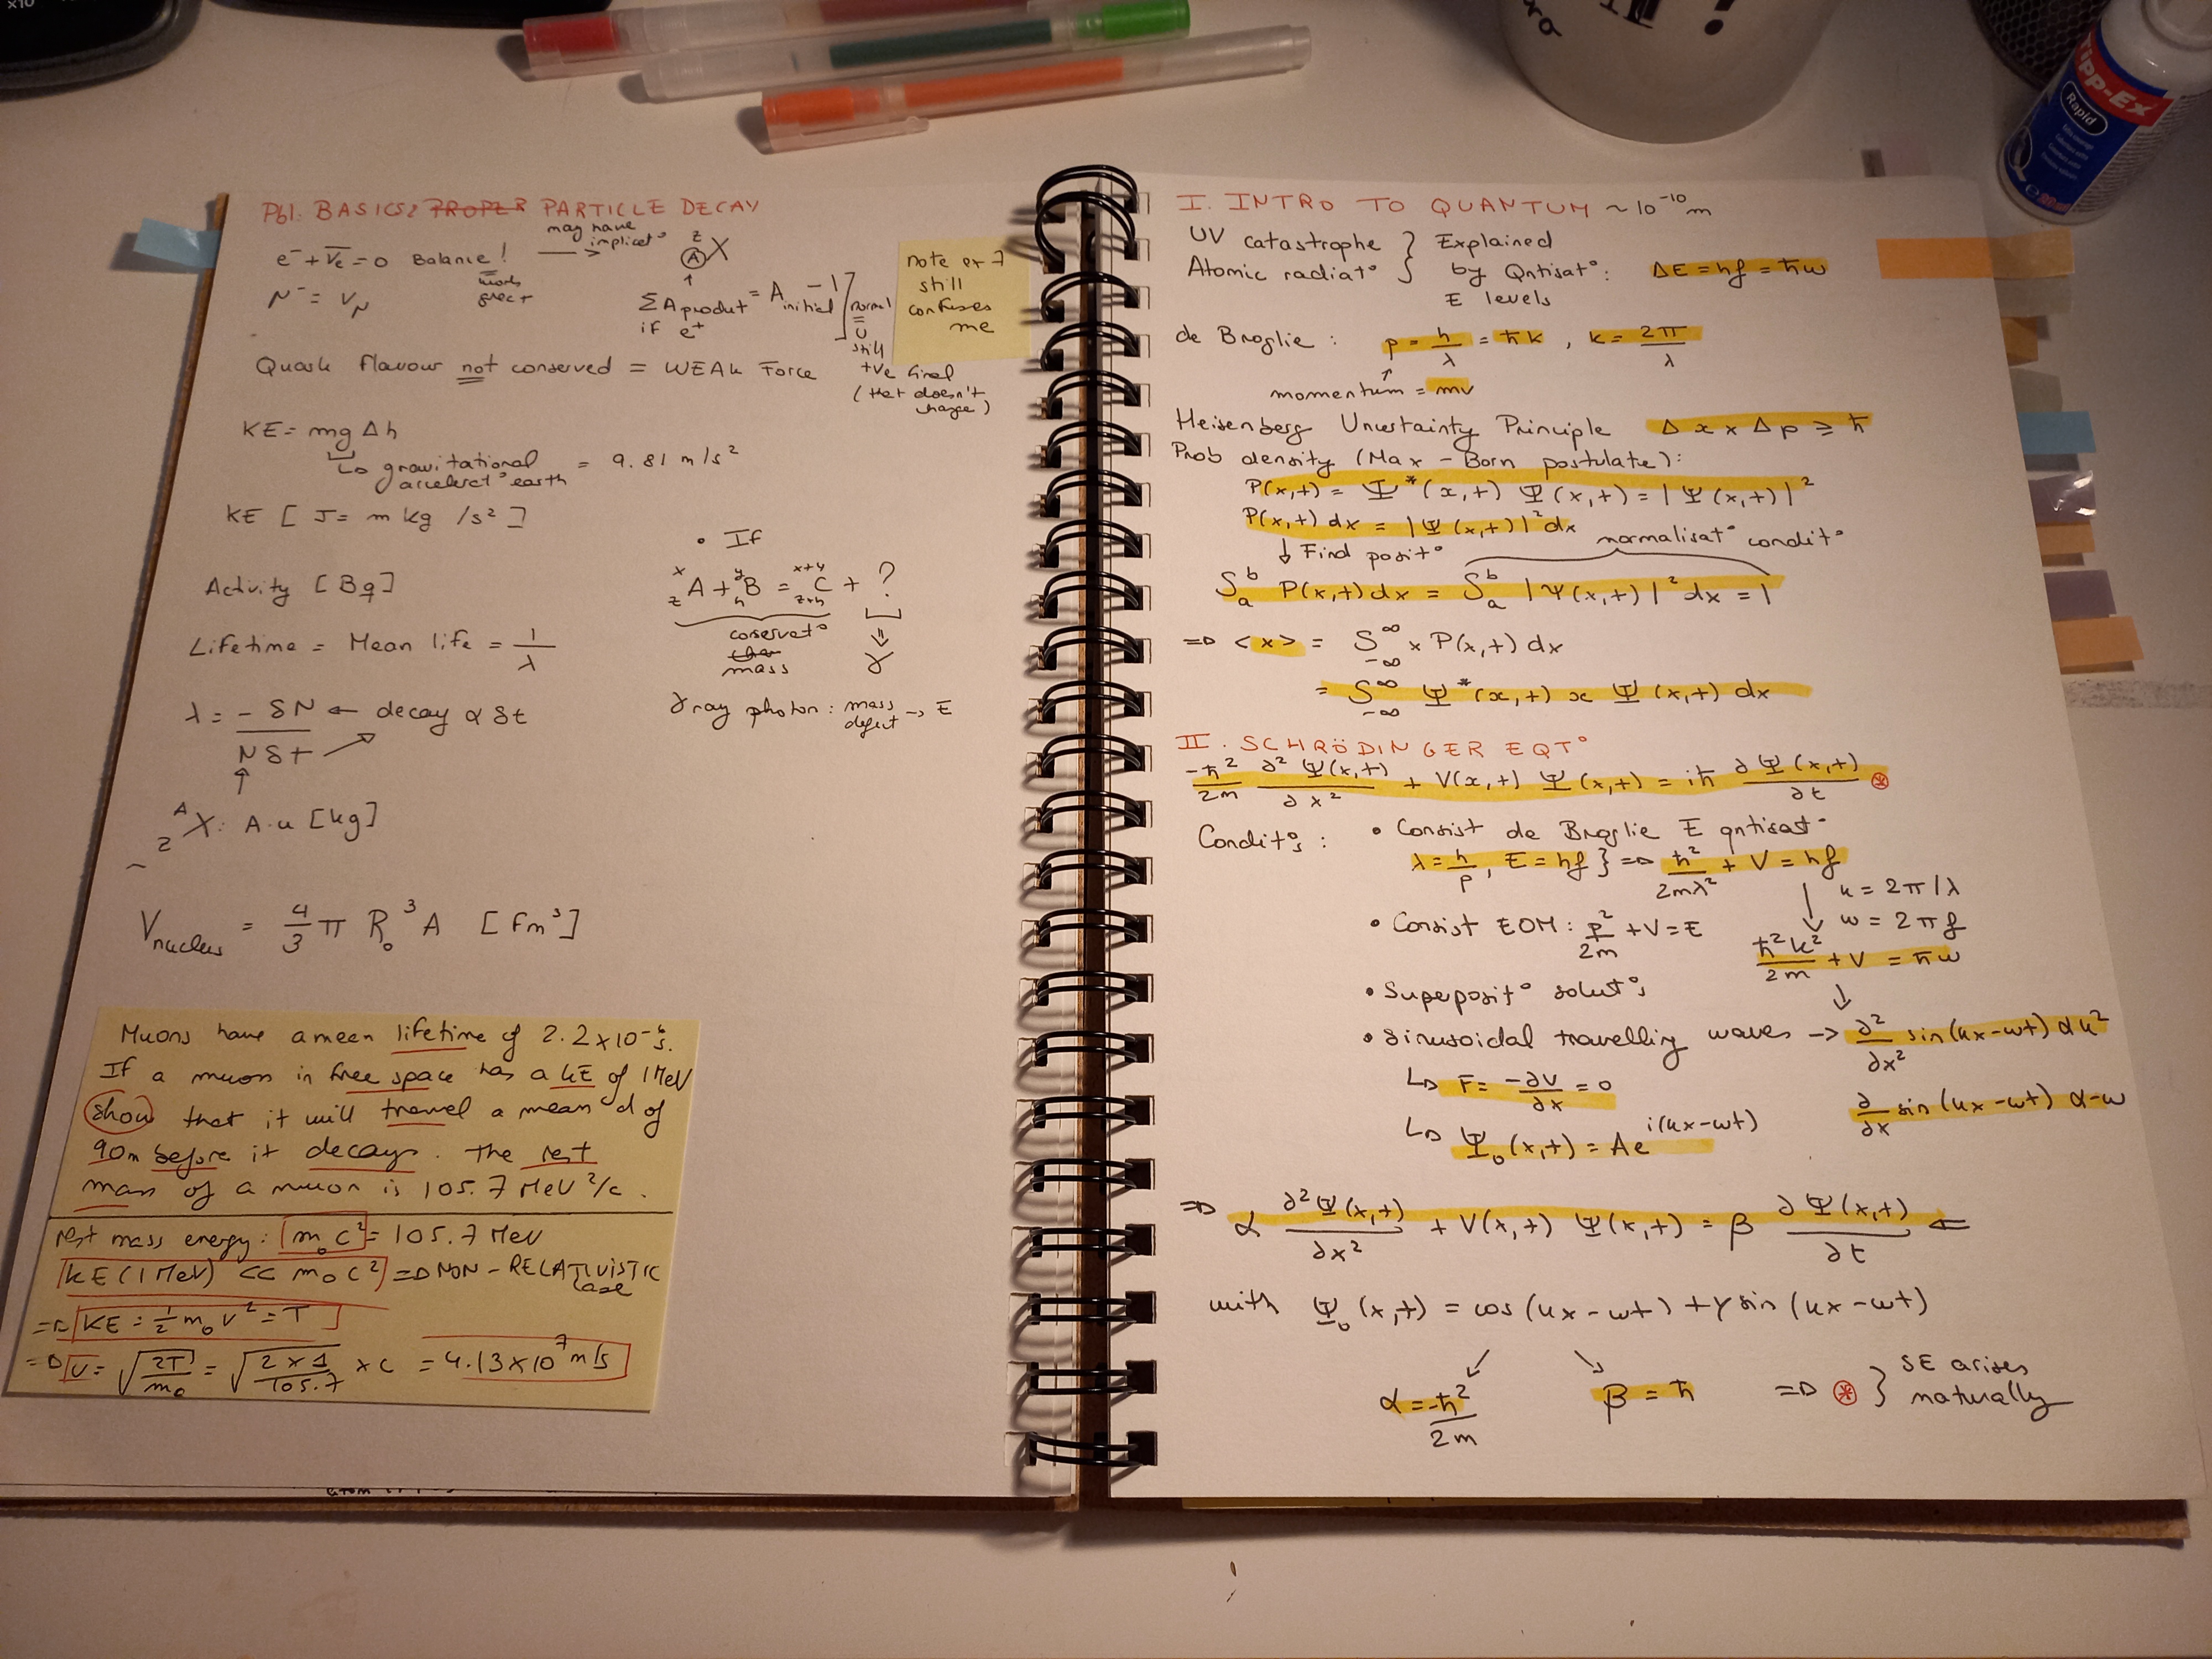 Pb1: BASICS? PROPER PARTICLE DECAY
e⁻ + ν̄e = 0 Balance!
may have implicat° ᶻX
Ⓐ
N⁻ = νN
ΣA product = A initial - 1
if e⁺
normal
still
+ve final
(that doesn't change)
note ex 7
still
confuses
me
Quark flavour not conserved = WEAK Force
KE = mg Δh
↳ gravitational accelerat° earth = 9.81 m/s²
KE [J = m kg/s²]
Activity [Bq]
Lifetime = Mean life = 1/λ
λ = - δN ← decay α δt
Nδt
• If
ˣzA + ʸnB = ˣ⁺ʸz+nC + ?
conservat°
mass
⇓
γ
γ ray photon: mass defect → E
~ ᴬzX: A·u [kg]
Vnucleus = 4/3 π R₀³ A [fm³]
Muons have a mean lifetime of 2.2×10⁻⁶s.
If a muon in free space has a KE of 1MeV
show that it will travel a mean d of
90m before it decays. The rest
mass of a muon is 105.7 MeV²/c.
Rest mass energy: m₀c² = 105.7 MeV
KE (1 MeV) << m₀c² => NON-RELATIVISTIC case
=> KE = ½ m₀v² = T
=> v = √(2T/m₀) = √(2×1/105.7) × c = 4.13×10⁷ m/s
I. INTRO TO QUANTUM ~10⁻¹⁰m
UV catastrophe } Explained
Atomic radiat° } by Qntisat°: ΔE = hf = ħω
E levels
de Broglie: p = h/λ = ħk, k = 2π/λ
momentum = mv
Heisenberg Uncertainty Principle Δx × Δp ≥ ħ
Prob density (Max-Born postulate):
P(x,t) = Ψ*(x,t) Ψ(x,t) = |Ψ(x,t)|²
P(x,t)dx = |Ψ(x,t)|²dx
↓ Find posit° normalisat° condit°
∫ₐᵇ P(x,t)dx = ∫ₐᵇ |Ψ(x,t)|²dx = 1
=> <x> = ∫₋∞^∞ x P(x,t)dx
= ∫₋∞^∞ Ψ*(x,t) x Ψ(x,t)dx
II. SCHRÖDINGER EQT°
-ħ²/2m ∂²Ψ(x,t)/∂x² + V(x,t) Ψ(x,t) = iħ ∂Ψ(x,t)/∂t ⊛
Condit°s: • Consist de Broglie E qntisat°
λ = h/p, E = hf } => h²/2mλ² + V = hf
k = 2π/λ
ω = 2πf
• Consist EOM: p²/2m + V = E
ħ²k²/2m + V = ħω
• Superposit° solut°s
• Sinusoidal travelling waves → ∂²/∂x² sin(kx-ωt) α k²
↳ F = -∂V/∂x = 0
∂/∂x sin(kx-ωt) α -ω
↳ Ψ₀(x,t) = Ae i(kx-ωt)
=> α ∂²Ψ(x,t)/∂x² + V(x,t) Ψ(x,t) = β ∂Ψ(x,t)/∂t ⇐
with Ψ₀(x,t) = cos(kx-ωt) + γ sin(kx-ωt)
α = -ħ²/2m β = ħ => ⊛ } SE arises naturally
Tipp-Ex
Rapid